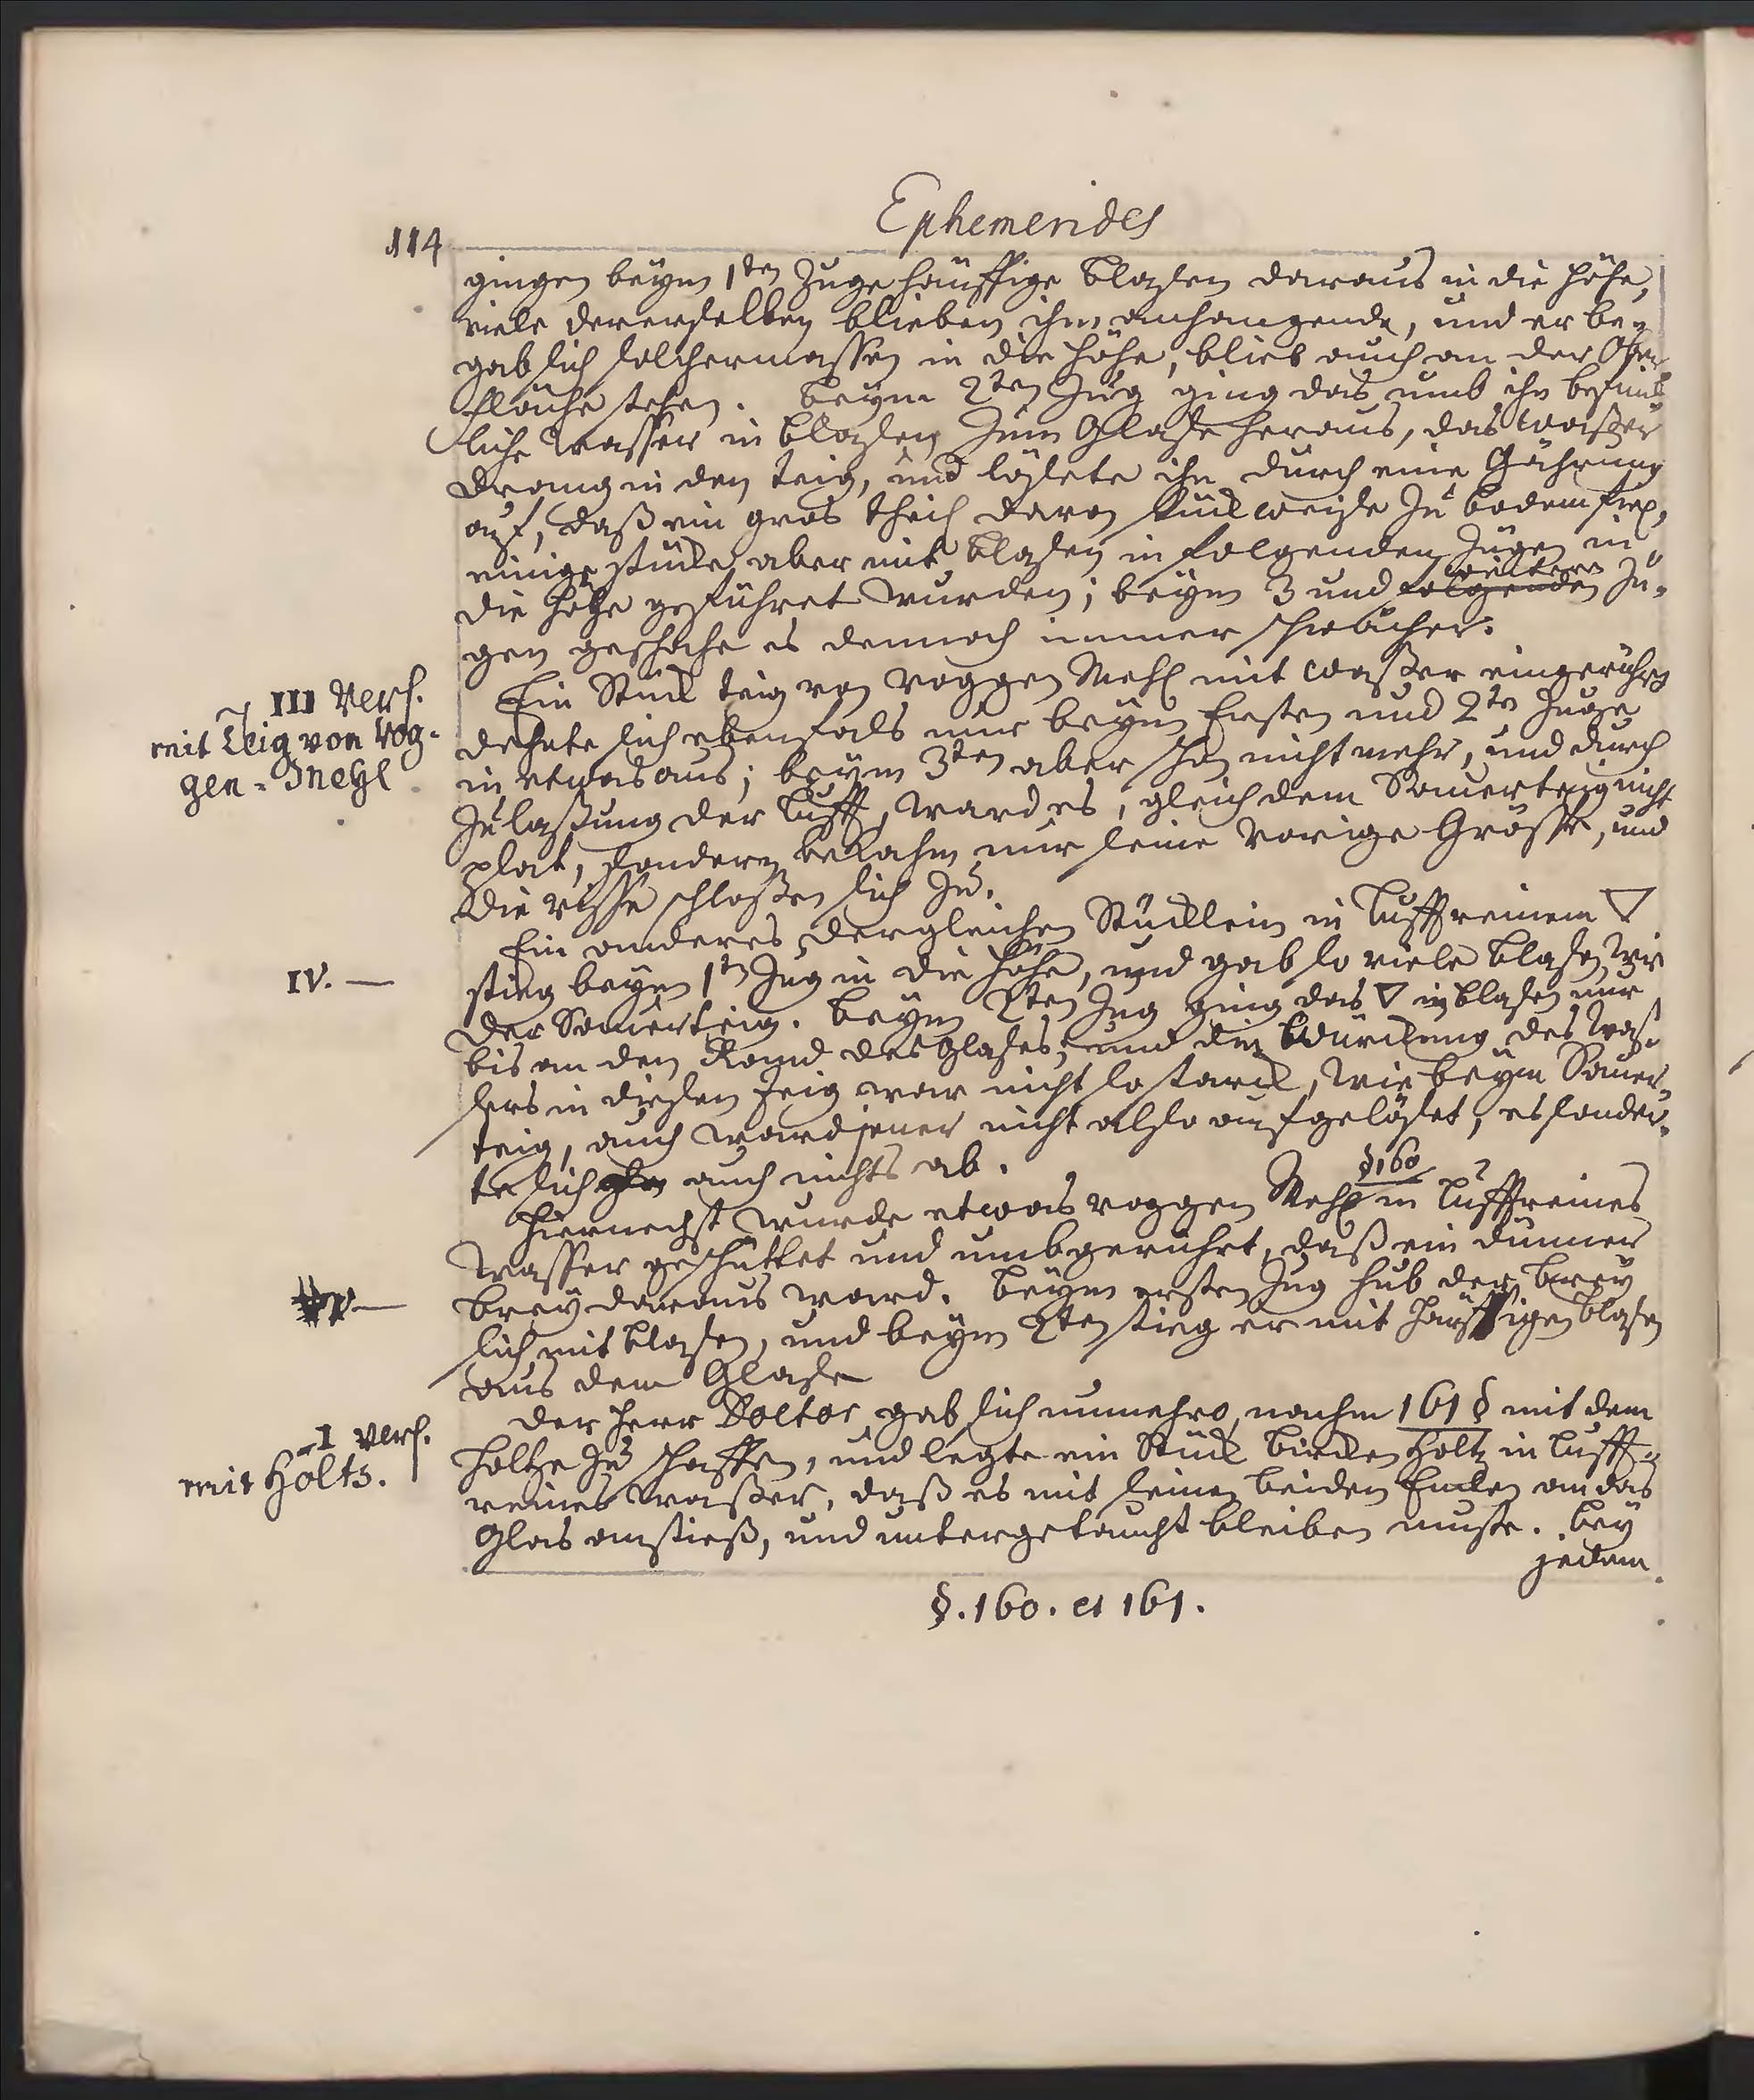 Ephemerides
114
gingen beym 1ten Zuge häuffige blasen daraus in die höhe,
viele dererselben blieben ihm anhangende, und er be-
gab sich solchermassen in die höhe, blieb auch an der Ober
fläche stehen. beym 2ten Zug ging das umb ihn befind
liche wasser in blasen zum Glase heraus, das waßer
drang in den teig, und lösete ihn durch eine Gährung
auf, daß ein gros theil davon stückweise zu bodem fiel,
einige stücke aber mit blasen in folgenden Zügen in
die höhe geführet wurden; beym 3 und folgenden weitern Zü-
gen geschahe es dennoch immer schwächer.
III Vers.
mit Teig von Rog-
gen-Mehl
Ein Stück teig von roggen Mehl mit waßer eingerührt
dehnte sich ebenfals nur beym Ersten und 2ten Zuge
in etwas aus; beym 3ten aber schon nicht mehr, und durch
Zulaßung der Lufft, ward es, gleich dem Sauerteig nicht
plat, sondern bekahm nur seine vorige Grösse, und
die risse schloßen sich zu.
IV. —
Ein anderes dergleichen Stücklein in Lufftreinem ▽
stieg beym 1ten Zug in die höhe, und gab so viele blasen, wie
der Sauerteig. beym 2ten Zug ging das ▽ in blasen nur
bis an den Rand des Glases; und die Würckung des was-
sers in diesen teig war nicht so starck, wie beym Sauer-
teig, auch ward jener nicht also aufgelöset, es sonder-
te sich auch nichts ab.
§ 160
V —
Hiernechst wurde etwas roggen Mehl in Lufftreines
wasser geschüttet und umbgerührt, daß ein dünner
brey daraus ward. beym ersten Zug hub der brey
sich mit blasen, und beym 2ten stieg er mit häuffigen blasen
aus dem Glase
I Vers.
mit Holts.
Der Herr Doctor gab sich nunmehro nachm 161 § mit dem
holtze zu schaffen, und legte ein Stück bircken Holtz in Lufft-
reines waßer, daß es mit seinen beiden Enden an das
Glas anstieß, und untergetaucht bleiben muste. Bey
jedem
§. 160. et 161.